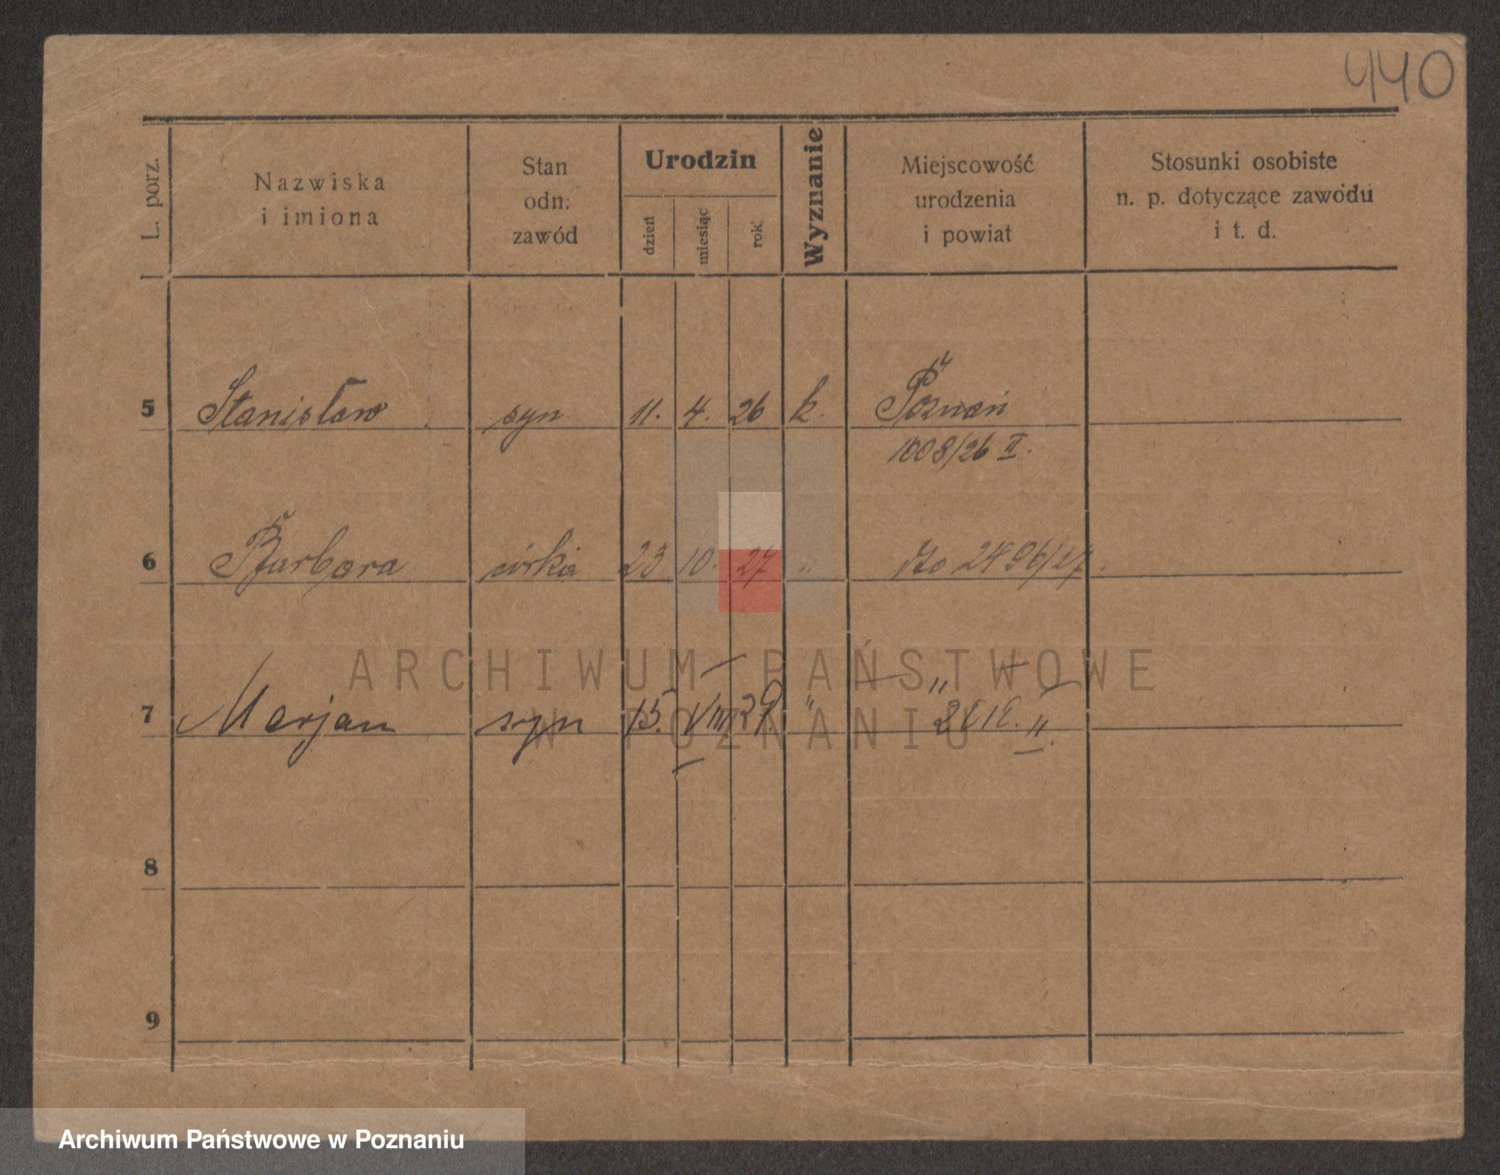 440
L. porz.
Nazwiska
i imiona
Stan
odn.
zawód
Urodzin
dzień
miesiąc
rok
Wyznanie
Miejscowość
urodzenia
i powiat
Stosunki osobiste
n. p. dotyczące zawodu
i t. d.
5 Stanisław syn 11. 4. 26 k. Poznań
1008/26 II.
6 Barbara córka 23 10. 27 " 2496/27.
"
7 Marjan syn 15. VIII 29 " II.
8
9
ARCHIWUM PAŃSTWOWE
W POZNANIU
Archiwum Państwowe w Poznaniu